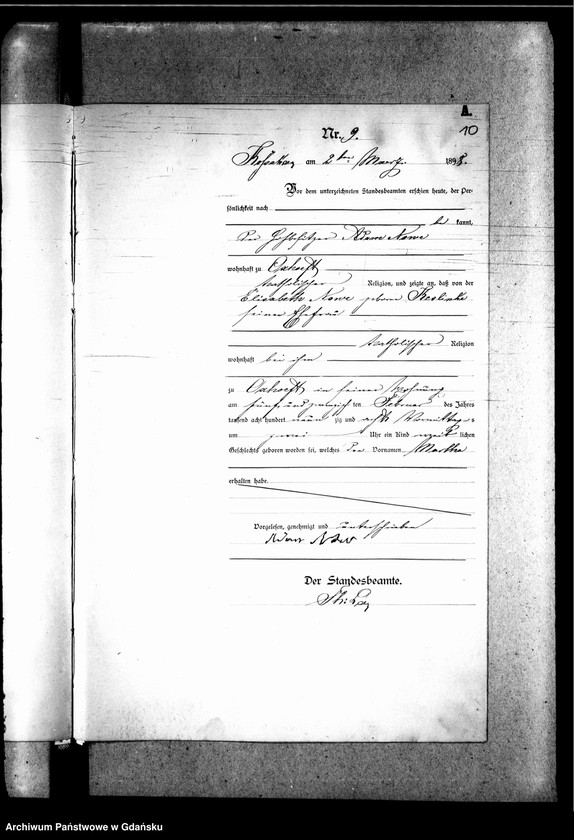 A.
10
Nr. 9.
am 2ten März 1898.
Vor dem unterzeichneten Standesbeamten erschien heute, der Per-
sönlichkeit nach
be kannt,
der Adam Nowe
wohnhaft zu Oxhoeft
katholischer Religion, und zeigte an, daß von der
Elisabeth Nowe geborne
seiner Ehefrau
katholischer Religion
wohnhaft bei ihm
zu Oxhoeft in seiner Wohnung
am fünfundzwanzigsten Februar des Jahres
tausend acht hundert neun zig und acht Vormittags
um zwei Uhr ein Kind weib lichen
Geschlechts geboren worden sei, welches den Vornamen Martha
erhalten habe.
Vorgelesen, genehmigt und unterschrieben
Adam
Der Standesbeamte.
Archiwum Państwowe w Gdańsku